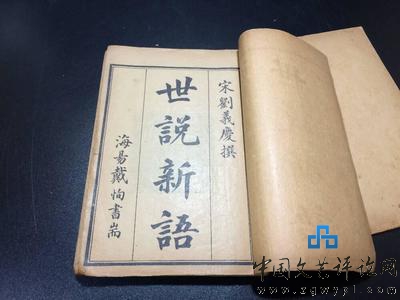 宋劉義慶撰
世説新語
海昜戴恂書耑
中国文艺评论网
www.zgwypl.com